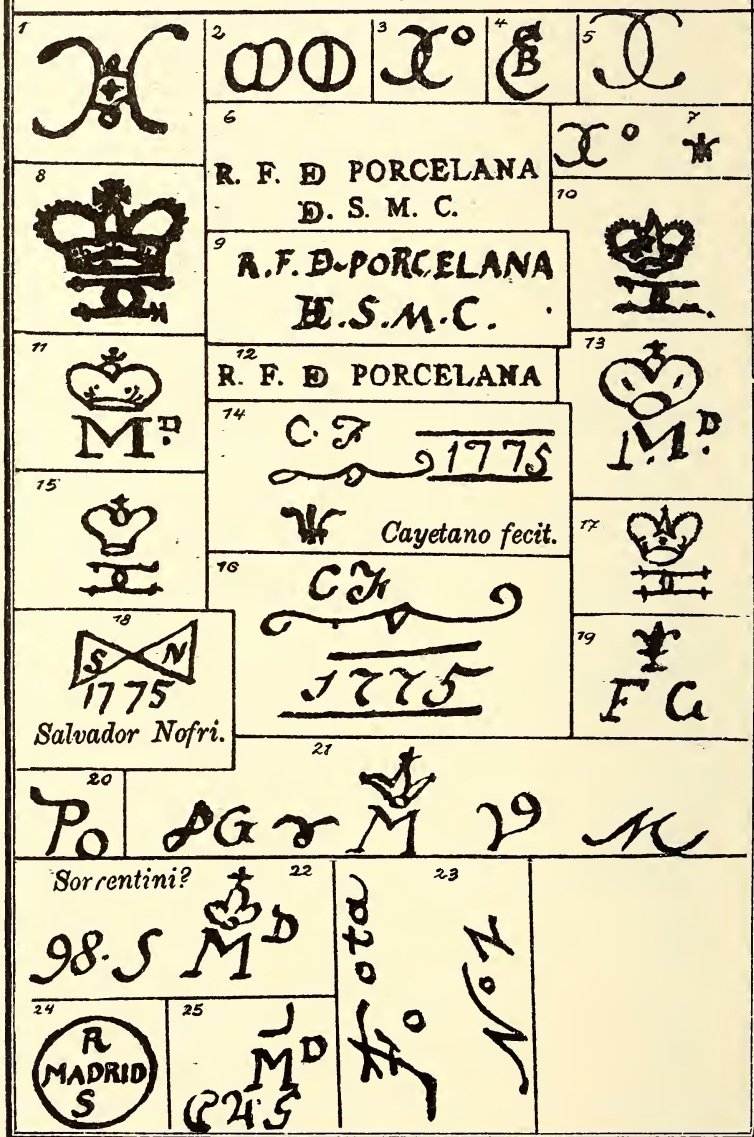 1
2
3
o
4
B
5
6
R. F. D PORCELANA
D. S. M. C.
7
o
8
9
R. F. D PORCELANA
DE. S. M. C.
10
11
M.D
12
R. F. D PORCELANA
13
M.D
14
C. F
1775
Cayetano fecit.
15
16
CF
1775
17
18
S N
1775
Salvador Nofri.
19
F G
20
Po
21
G M M
22
Sorrentini?
98. S MD
23
ota
o
No
24
R
MADRID
S
25
MD